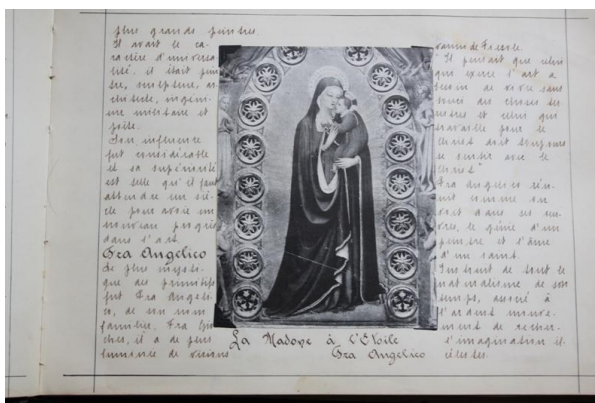 plus grands peintres.
Il avait le ca-
ractère d'universa-
lité, il était pein
tre, sculpteur, ar-
chitecte, ingéni-
eur militaire et
poète.
Son influence
fut considérable
et sa supériorité
est telle qu'il faut
attendre un siè-
cle pour avoir un
nouveau progrès
dans l'art.
Fra Angelico
Le plus mysti-
que des primitifs
fut Fra Angeli-
co, de son nom
il a de plus
lumière de
La Madone à l'Etoile
Fra Angelico
vanni de Fiesole.
"Il pensait que celui
qui exerce l'art a
besoin de vivre sans
souci des choses ter
restres et celui qui
travaille pour le
Christ doit toujours
se sentir avec le
Christ"
Fra Angelico réu-
nit comme on
voit dans ses œu-
vres, le génie d'un
peintre et l'âme
d'un saint.
Instruit de tout le
naturalisme de son
temps, associé à
l'ardent mouve-
ment de
l'imagination
célestes.